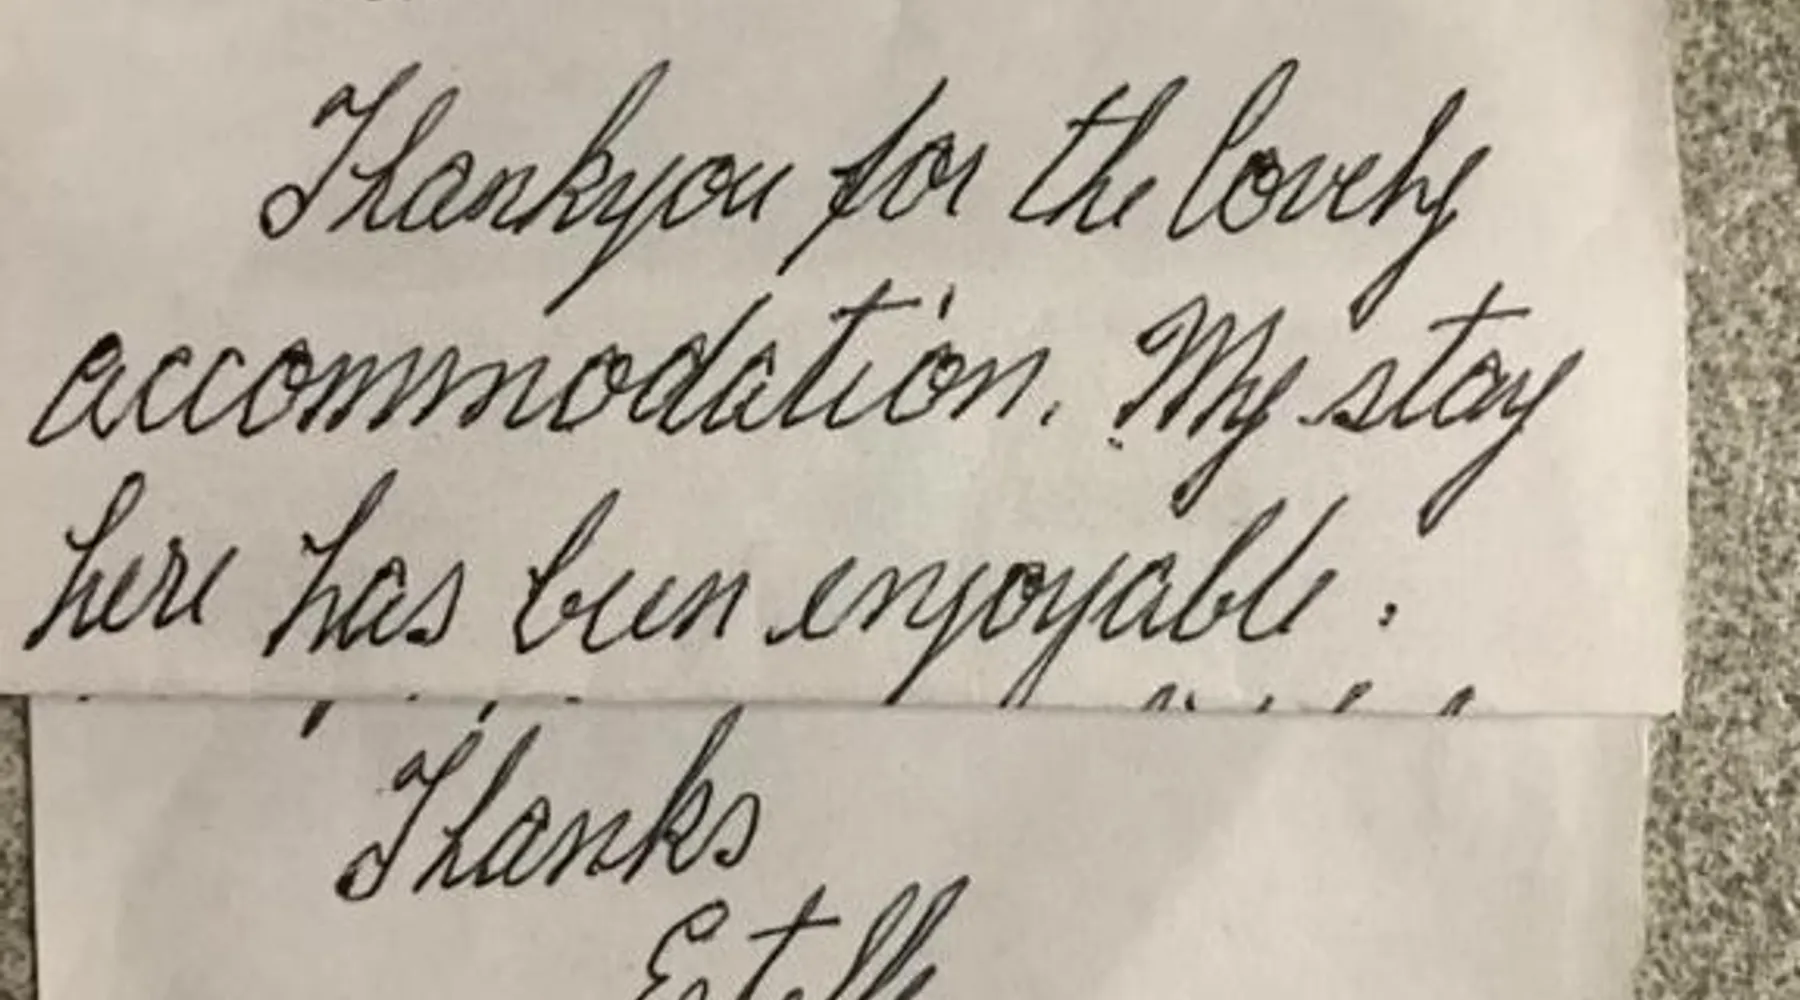 Thankyou for the lovely
accommodation. My stay
here has been enjoyable.
Thanks
Estelle